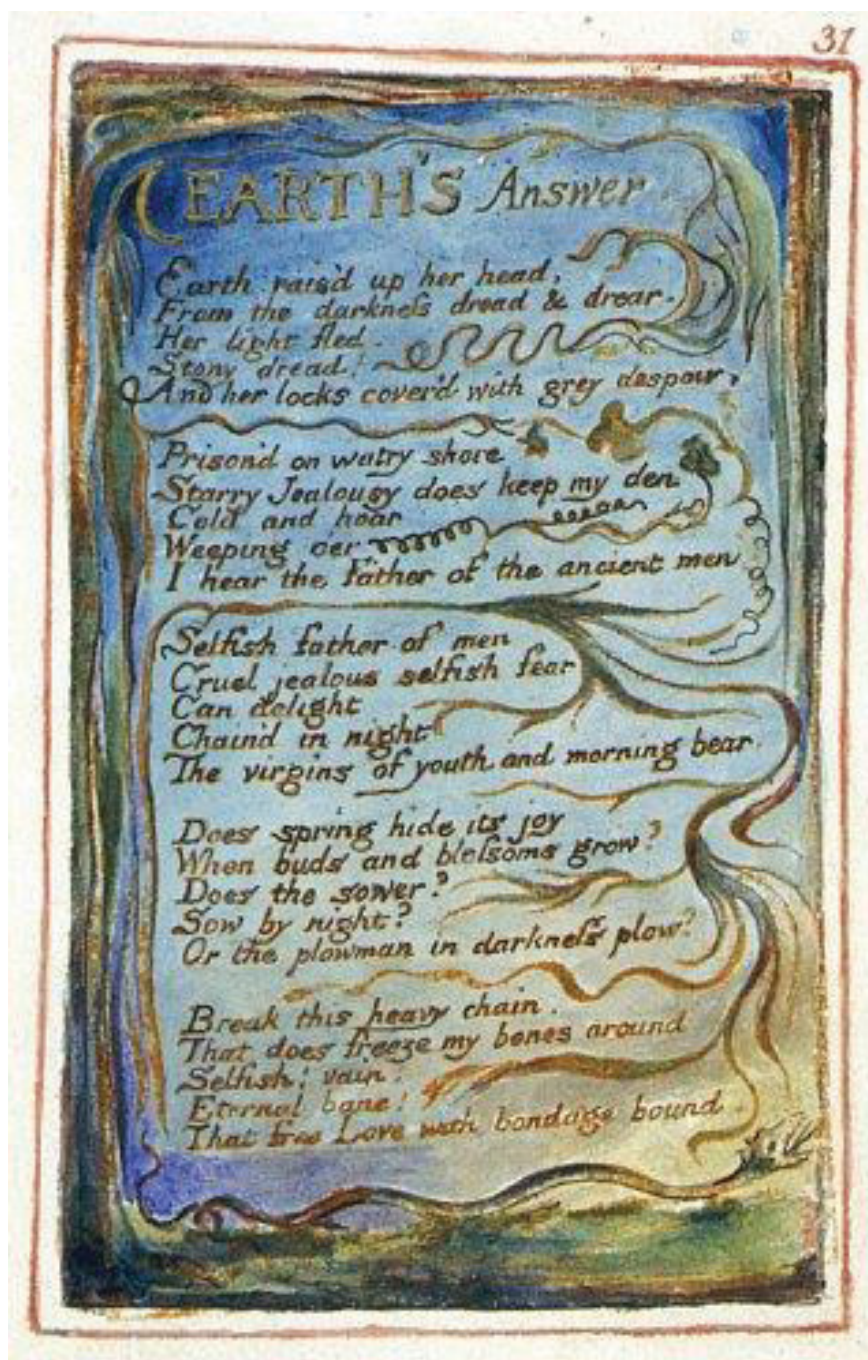 31
EARTH'S Answer
Earth rais'd up her head,
From the darkness dread & drear.
Her light fled.
Stony dread!
And her locks cover'd with grey despair.
Prison'd on watry shore
Starry Jealousy does keep my den
Cold and hoar
Weeping o'er
I hear the Father of the ancient men
Selfish father of men
Cruel jealous selfish fear
Can delight
Chain'd in night
The virgins of youth and morning bear.
Does spring hide its joy
When buds and blossoms grow?
Does the sower?
Sow by night?
Or the plowman in darkness plow?
Break this heavy chain.
That does freeze my bones around
Selfish! vain!
Eternal bane!
That free Love with bondage bound.